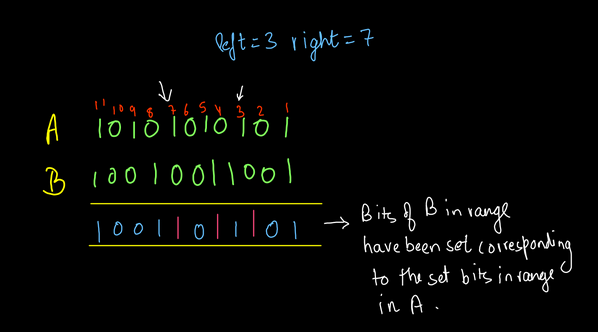 left=3 right=7
11 10 9 8 7 6 5 4 3 2 1
A 10101010101
B 10010011001
10011011101
→ Bits of B in range
have been set corresponding
to the set bits in range
in A.